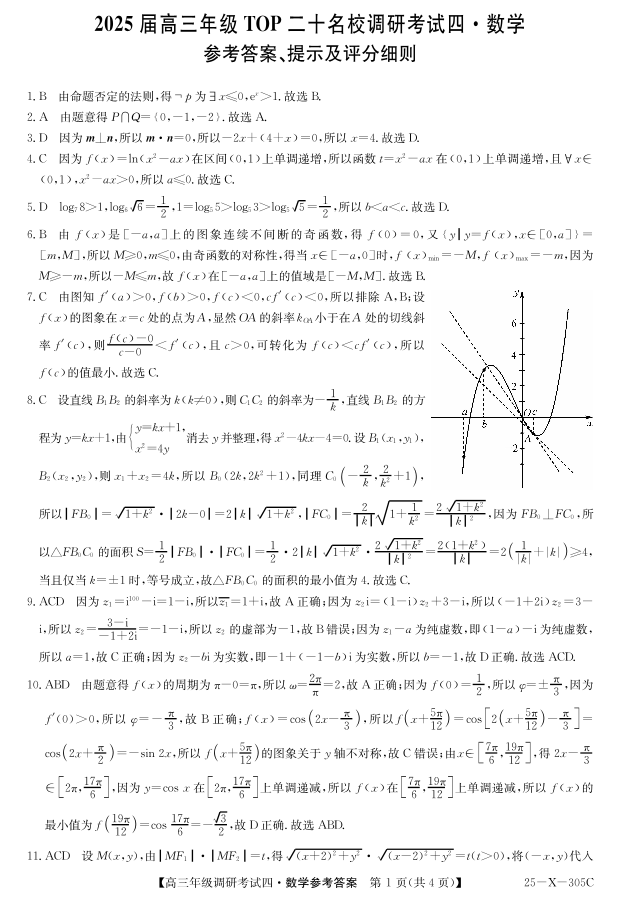 2025 届高三年级 TOP 二十名校调研考试四·数学
参考答案、提示及评分细则
1. B 由命题否定的法则,得¬p 为∃x≤0,eˣ>1. 故选 B.
2. A 由题意得 P∩Q={0,-1,-2}. 故选 A.
3. D 因为 m⊥n,所以 m·n=0,所以-2x+(4+x)=0,所以 x=4. 故选 D.
4. C 因为 f(x)=ln(x²-ax)在区间(0,1)上单调递增,所以函数 t=x²-ax 在(0,1)上单调递增,且∀x∈
(0,1),x²-ax>0,所以 a≤0. 故选 C.
5. D log₇8>1,log₆√6=1/2,1=log₅5>log₅3>log₅√5=1/2,所以 b<a<c. 故选 D.
6. B 由 f(x)是[-a,a]上的图象连续不间断的奇函数,得 f(0)=0,又{y|y=f(x),x∈[0,a]}=
[m,M],所以 M≥0,m≤0,由奇函数的对称性,得当 x∈[-a,0]时,f(x)min=-M,f(x)max=-m,因为
M≥-m,所以-M≤m,故 f(x)在[-a,a]上的值域是[-M,M]. 故选 B.
7. C 由图知 f′(a)>0,f(b)>0,f(c)<0,cf′(c)<0,所以排除 A,B;设
f(x)的图象在 x=c 处的点为 A,显然 OA 的斜率 kOA 小于在 A 处的切线斜
率 f′(c),则 (f(c)-0)/(c-0)<f′(c),且 c>0,可转化为 f(c)<cf′(c),所以
f(c)的值最小. 故选 C.
y
6
4
2
a
b
O
c
x
A
2
8. C 设直线 B₁B₂ 的斜率为 k(k≠0),则 C₁C₂ 的斜率为-1/k,直线 B₁B₂ 的方
程为 y=kx+1,由{y=kx+1, x²=4y 消去 y 并整理,得 x²-4kx-4=0. 设 B₁(x₁,y₁),
B₂(x₂,y₂),则 x₁+x₂=4k,所以 B₀(2k,2k²+1),同理 C₀(-2/k,2/k²+1),
所以|FB₀|=√(1+k²)·|2k-0|=2|k|√(1+k²),|FC₀|=2/|k|√(1+1/k²)=2√(1+k²)/|k|²,因为 FB₀⊥FC₀,所
以△FB₀C₀ 的面积 S=1/2|FB₀|·|FC₀|=1/2·2|k|√(1+k²)·2√(1+k²)/|k|²=2(1+k²)/|k|=2(1/|k|+|k|)≥4,
当且仅当 k=±1 时,等号成立,故△FB₀C₀ 的面积的最小值为 4. 故选 C.
9. ACD 因为 z₁=i¹⁰⁰-i=1-i,所以z̅₁=1+i,故 A 正确;因为 z₂i=(1-i)z₂+3-i,所以(-1+2i)z₂=3-
i,所以 z₂=(3-i)/(-1+2i)=-1-i,所以 z₂ 的虚部为-1,故 B 错误;因为 z₁-a 为纯虚数,即(1-a)-i 为纯虚数,
所以 a=1,故 C 正确;因为 z₂-bi 为实数,即-1+(-1-b)i 为实数,所以 b=-1,故 D 正确. 故选 ACD.
10. ABD 由题意得 f(x)的周期为 π-0=π,所以 ω=2π/π=2,故 A 正确;因为 f(0)=1/2,所以 φ=±π/3,因为
f′(0)>0,所以 φ=-π/3,故 B 正确;f(x)=cos(2x-π/3),所以 f(x+5π/12)=cos[2(x+5π/12)-π/3]=
cos(2x+π/2)=-sin 2x,所以 f(x+5π/12)的图象关于 y 轴不对称,故 C 错误;由 x∈[7π/6,19π/12],得 2x-π/3
∈[2π,17π/6],因为 y=cos x 在[2π,17π/6]上单调递减,所以 f(x)在[7π/6,19π/12]上单调递减,所以 f(x)的
最小值为 f(19π/12)=cos 17π/6=-√3/2,故 D 正确. 故选 ABD.
11. ACD 设 M(x,y),由|MF₁|·|MF₂|=t,得√((x+2)²+y²)·√((x-2)²+y²)=t(t>0),将(-x,y)代入
【高三年级调研考试四·数学参考答案 第 1 页(共 4 页)】 25-X-305C